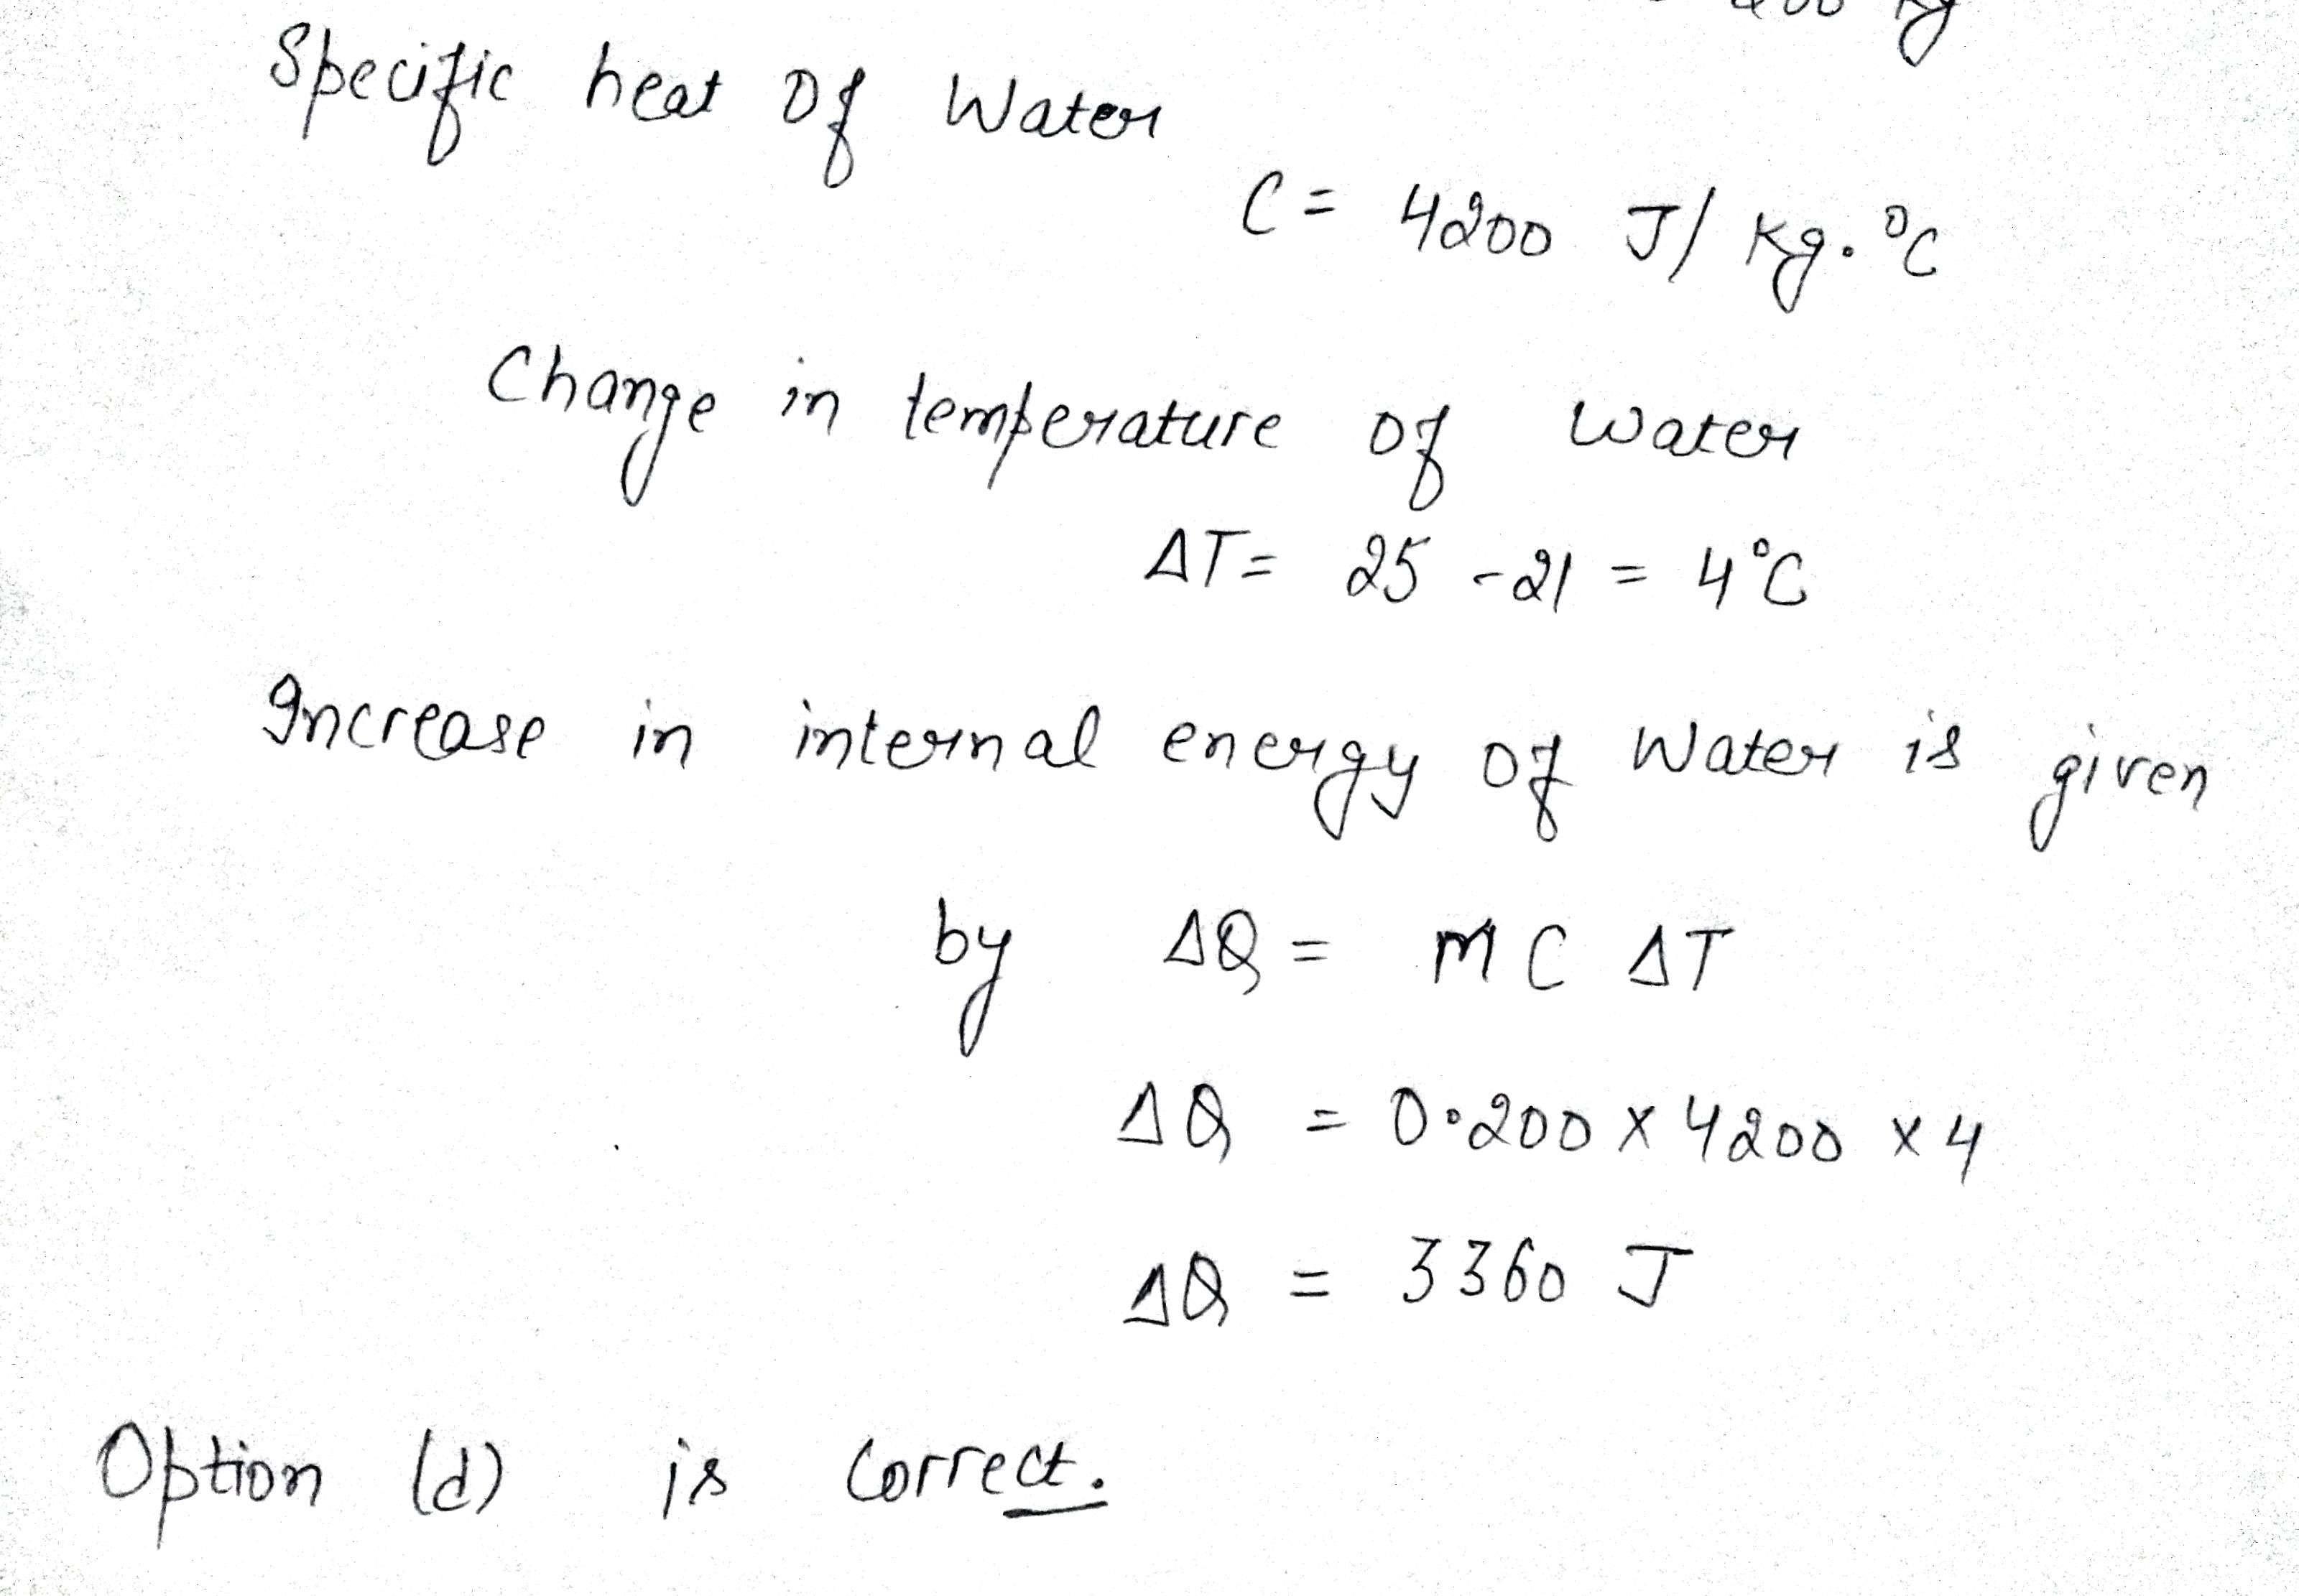 Specific heat of Water
C = 4200 J/ Kg.°C
Change in temperature of water
ΔT = 25 - 21 = 4°C
Increase in internal energy of Water is given
by ΔQ = m C ΔT
ΔQ = 0.200 x 4200 x 4
ΔQ = 3360 J
Option (d) is correct.